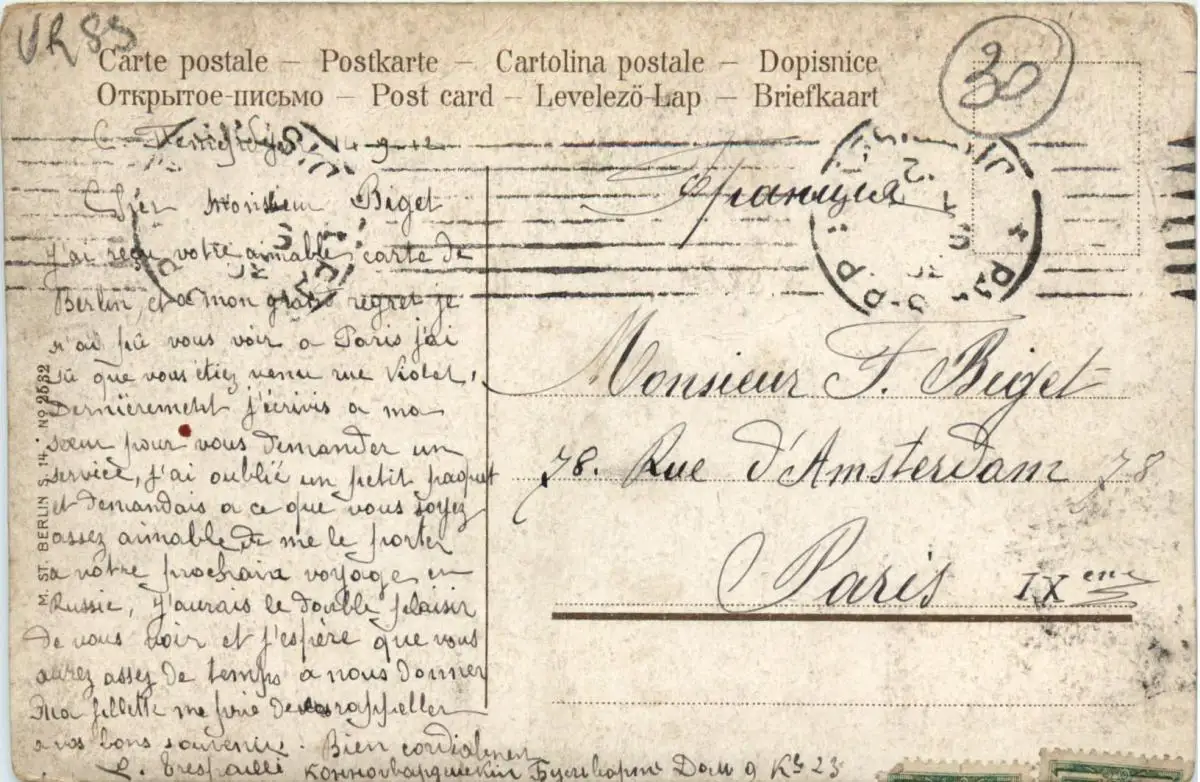 VR 83
Carte postale – Postkarte – Cartolina postale – Dopisnice
Открытое-письмо – Post card – Levelezö-Lap – Briefkaart
30
14 9 12
Cher Monsieur Biget
j'ai reçu votre aimable carte de
Berlin, et a mon grand regret je
n'ai pû vous voir a Paris j'ai
sû que vous étiez venu rue Violet,
Dernièrement j'écrivis a ma
sœur pour vous demander un
service, j'ai oublié un petit paquet
et demandais a ce que vous soyez
assez aimable de me le porter
a votre prochain voyage en
Russie, j'aurais le double plaisir
de vous voir et j'espère que vous
aurez assez de temps a nous donner
Ma fillette me prie de la rappeller
a vos bons souvenir. Bien cordialement
Конногвардейскій Бульваръ Домъ 9 Кв 23
Франция
Monsieur F. Biget
78. Rue d'Amsterdam 78
Paris IXeme
M. ST. BERLIN S. 14. · No 2532